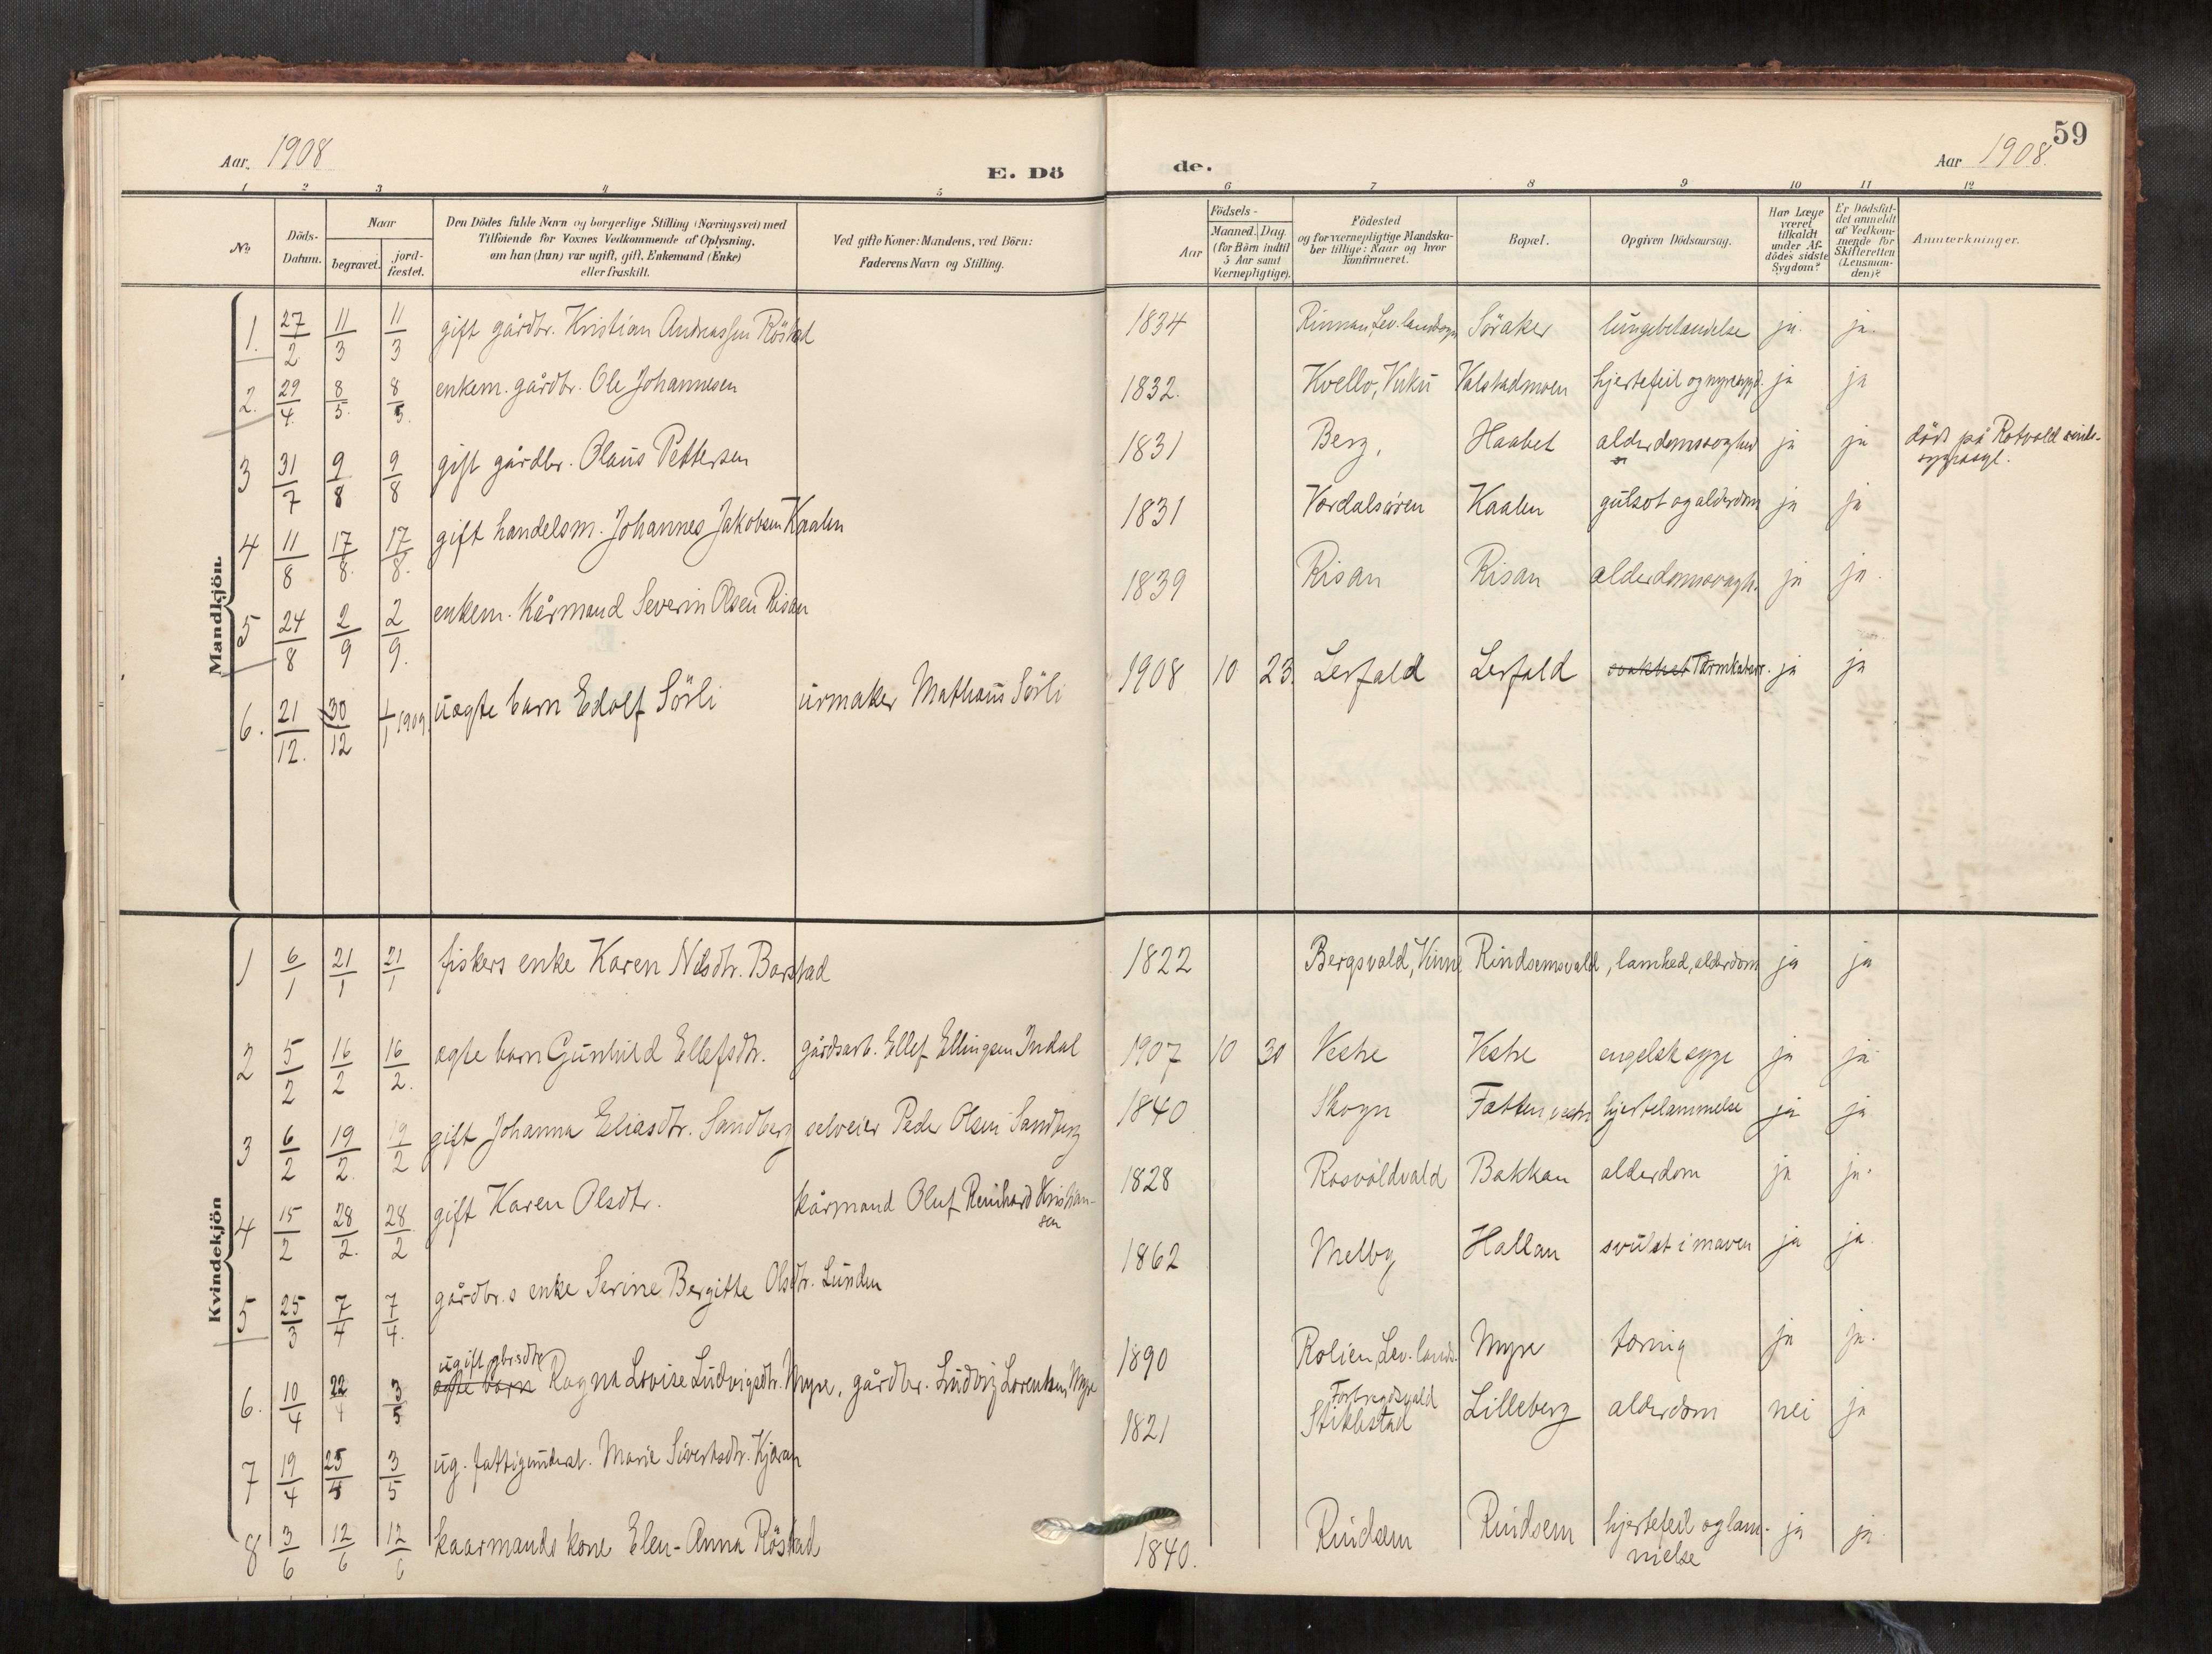 Aar. 1908
E. Dö
de.
Aar 1908.
59
1 2 3 4 5 6 7 8 9 10 11 12
No
Döds-
Datum.
Naar
begravet.
jord-
fæstet.
Den Dödes fulde Navn og borgerlige Stilling (Næringsvei) med
Tilföiende for Voxnes Vedkommende af Oplysning,
om han (hun) var ugift, gift, Enkemand (Enke)
eller fraskilt.
Ved gifte Koner: Mandens, ved Börn:
Faderens Navn og Stilling.
Födsels-
Aar
Maaned. Dag.
(for Börn indtil
5 Aar samt
Værnepligtige).
Födested
og for værnepligtige Mandska-
ber tillige: Naar og hvor
konfirmeret.
Bopæl.
Opgiven Dödsaarsag.
Har Læge
været
tilkaldt
under Af-
dödes sidste
Sygdom?
Er Dödsfal-
det anmeldt
af Vedkom-
mende for
Skifteretten
(Lensman-
den)?
Anmærkninger.
Mandkjön.
1. 27/2 11/3 11/3 gift gårdbr. Kristian Andreassen Röstad 1834 Rinnan, Lev. landsogn Söraker lungebetændelse ja. ja.
2. 29/4 8/5 8/5. enkem. gårdbr. Ole Johannesen 1832. Kvello, Vuku Valstadmoen hjertefeil og nyresygd. ja ja
3 31/7 9/8 9/8 gift gårdbr. Olaus Pettersen 1831 Berg, Haabet alderdomssvaghed ja ja död på Rotvold sinds-
sygeasyl.
4 11/8 17/8. 17/8. gift handelsm. Johannes Jakobsen Kaalen 1831 Værdalsören Kaalen gulsot og alderdom ja ja
5 24/8 2/9 2/9. enkem. kårmand Severin Olsen Risan 1839 Risan Risan alderdomssvagh. ja ja.
6. 21/12. 30/12 1/1 1909. uægte barn Edolf Sörli urmaker Mathæus Sörli 1908 10 23. Lerfald Lerfald svakhet Tarmkatarr. ja ja
Kvindekjön
1 6/1 21/1 21/1 fiskers enke Karen Nilsdtr. Barstad 1822 Bergsvald, Vinne Rindsemsvald, lamhed, alderdom ja ja
2 5/2 16/2 16/2. ægte barn Gunhild Ellefsdtr. gårdsarb. Ellef Ellingsen Indal 1907 10 30 Vestre Vestre engelsk syge ja ja
3 6/2 19/2. 19/2 gift Johanna Eliasdtr. Sandberg selveier Peder Olsen Sandberg 1840 Skogn Fætten, vestre hjertelammelse ja ja
4 15/2 28/2. 28/2 gift Karen Olsdtr. kårmand Oluf Reinhard Kristian-
sen 1828 Rosvoldvald Bakkan alderdom ja ja.
5 25/3 7/4 7/4. gårdbr.s enke Serine Bergitte Olsdtr. Lunden 1862 Melby Hallan svulst i maven ja ja.
ugift gbrsdtr
6. 10/4 22/4 3/5 ægte barn Ragna Lovise Ludvigsdtr. Myre, gårdbr. Ludvig Lorentsen Myre 1890 Rolien, Lev. lands. Myre tæring ja ja.
Forbregdsvald
7 19/4 25/4 3/5 ug. fattigunderst. Marie Sivertsdtr. Kjæran 1821 Stiklestad Lilleberg alderdom nei ja
8 3/6 12/6 12/6 kaarmands kone Elen-Anna Röstad 1840. Rindsem Rindsem hjertefeil og lam-
melse ja ja